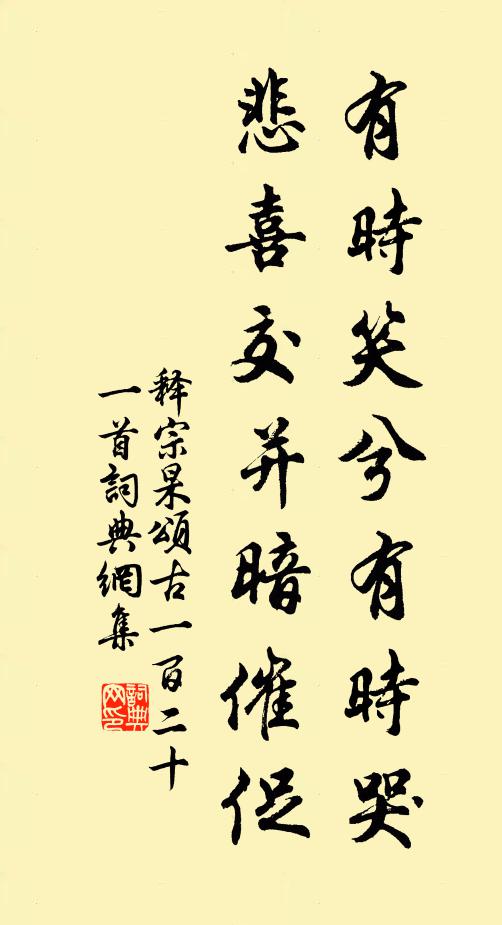 有時笑兮有時哭
悲喜交并暗催促
释宗杲頌古一百二十
一首詞典網集
詞典网印